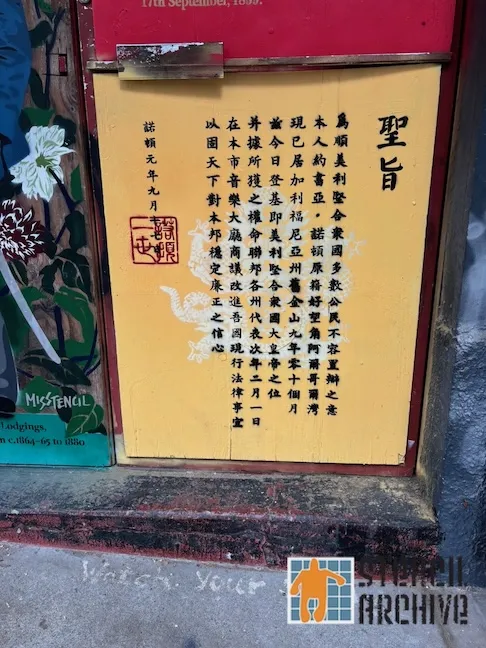 17th September, 1859.
聖旨
爲順美利堅合衆國多數公民不容置辯之意
本人約書亞·諾頓原籍好望角阿爾哥爾灣
現已居加利福尼亞州舊金山九零十個月
茲今日登基即美利堅合衆國大皇帝之位
并據所獲之權命聯邦各州代表次年二月一日
在本市音樂大廳商議改進吾國現行法律事宜
以固天下對本邦穩定廉正之信心
諾頓元年九月
諾頓一世
MISSTENCIL
Lodgings,
c.1864-65 to 1880
Watch your
STENCIL
ARCHIVE